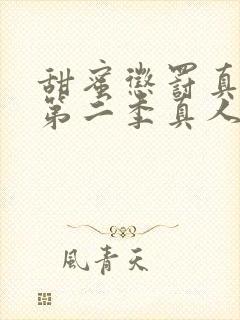 甜蜜懲罰真
第二季真人
風青天